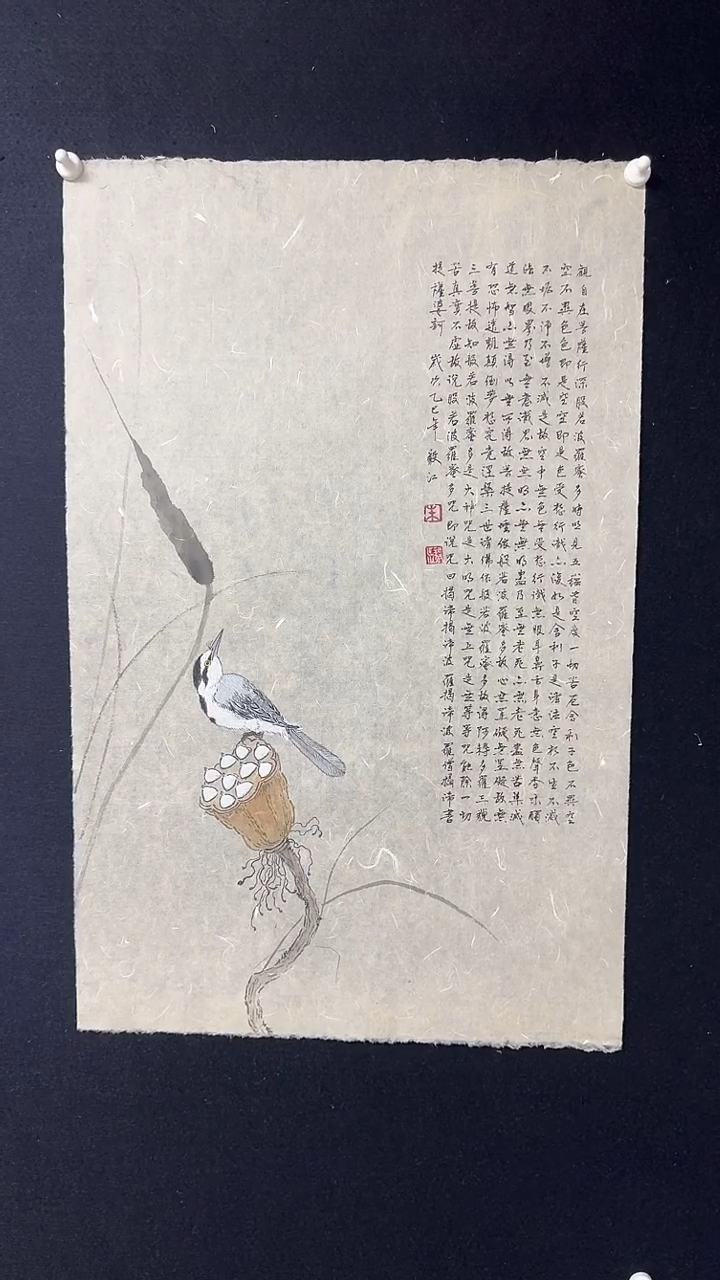 觀自在菩薩行深般若波羅蜜多時照見五蘊皆空度一切苦厄舍利子色不異空
空不異色色即是空空即是色受想行識亦復如是舍利子是諸法空相不生不滅
不垢不淨不增不減是故空中無色無受想行識無眼耳鼻舌身意無色聲香味觸
法無眼界乃至無意識界無無明亦無無明盡乃至無老死亦無老死盡無苦集滅
道無智亦無得以無所得故菩提薩埵依般若波羅蜜多故心無罣礙無罣礙故無
有恐怖遠離顛倒夢想究竟涅槃三世諸佛依般若波羅蜜多故得阿耨多羅三藐
三菩提故知般若波羅蜜多是大神咒是大明咒是無上咒是無等等咒能除一切
苦真實不虛故說般若波羅蜜多咒即說咒曰揭諦揭諦波羅揭諦波羅僧揭諦菩
提薩婆訶 歲次乙巳年 毅江
朱